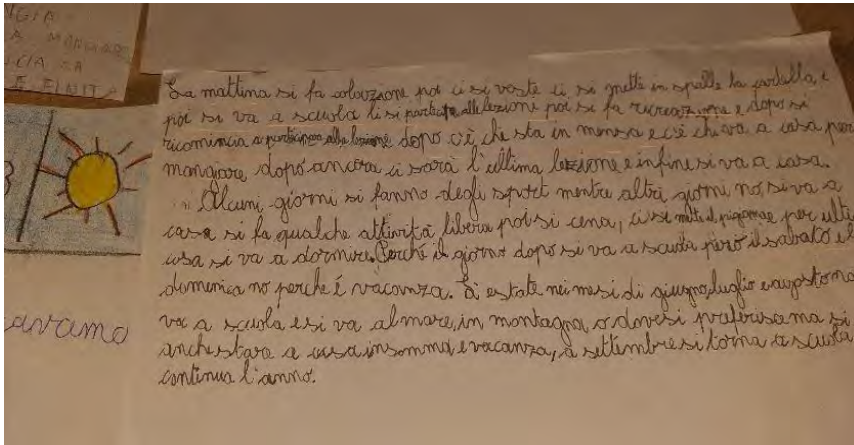 NGIA
A MANGIAR
CIA RA
E FINITA
La mattina si fa colazione poi ci si veste ci si mette in spalle la cartella, e
poi si va a scuola li si partecipa alle lezione poi si fa ricreazione e dopo si
ricomincia a partecipare alla lezione dopo c'è che sta in mensa e c'è chi va a casa per
mangiare dopo ancora ci sarà l'ultima lezione e infine si va a casa.
Alcuni giorni si fanno degli sport mentre altri giorni no, si va a
casa si fa qualche attività libera poi si cena, ci si mette il pigiama e per ulti
cosa si va a dormire. Perché il giorno dopo si va a scuola però il sabato e l
domenica no perché é vacanza. D'estate nei mesi di giugno, luglio e agosto no
va a scuola e si va al mare, in montagna, o dove si preferisce ma si
anche stare a casa insomma è vacanza, a settembre si torna a scuola
continua l'anno.
cavamo